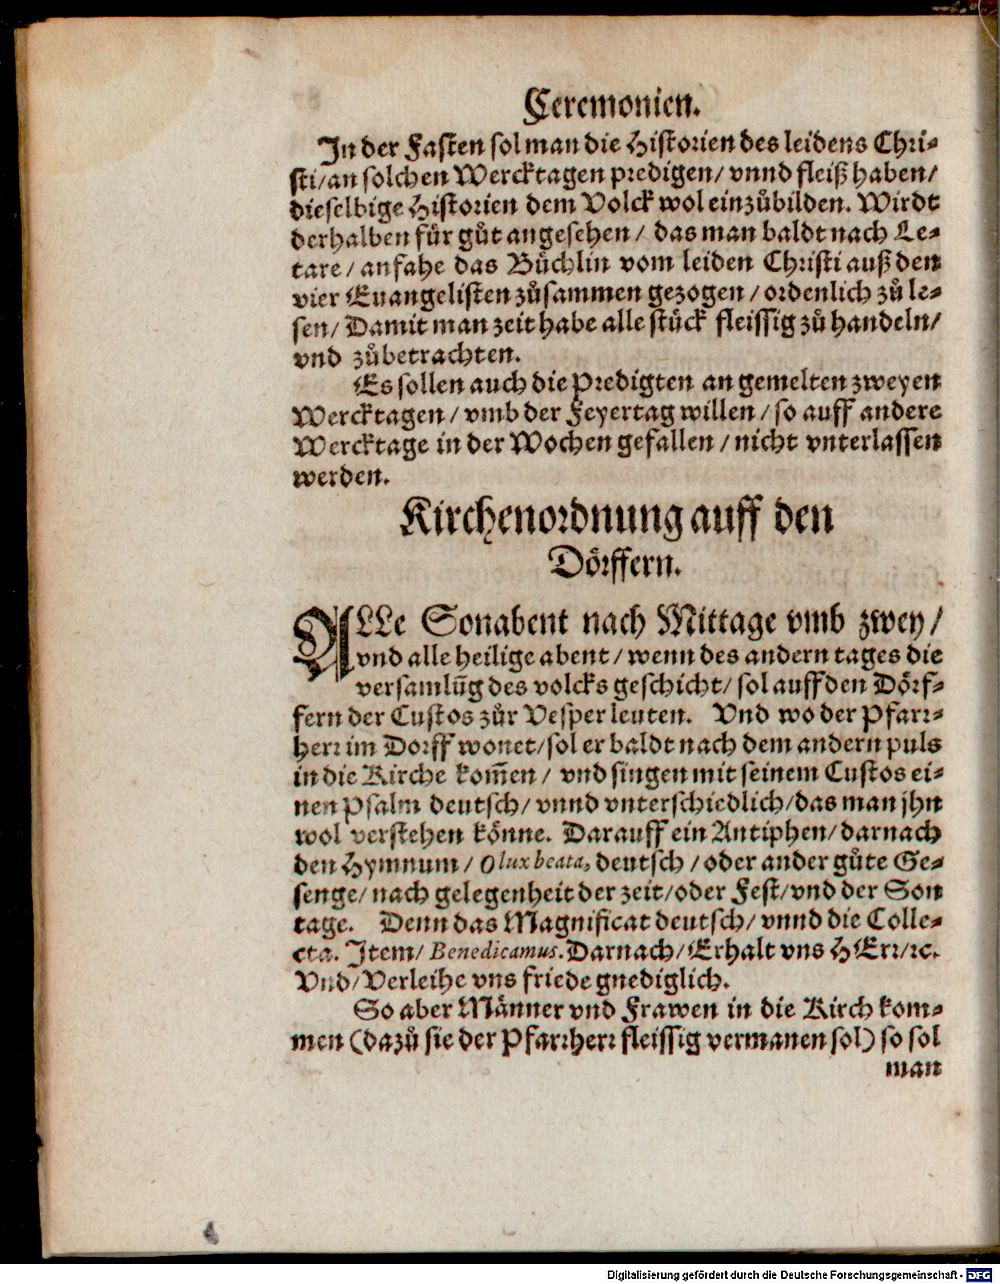 Ceremonien.
In der Fasten sol man die Historien des leidens Chri-
sti/ an solchen Wercktagen predigen/ vnnd fleiß haben/
dieselbige Historien dem Volck wol einzůbilden. Wirdt
derhalben für gůt angesehen/ das man baldt nach Le-
tare/ anfahe das Büchlin vom leiden Christi auß den
vier Euangelisten zůsammen gezogen/ ordenlich zů le-
sen/ Damit man zeit habe alle stück fleissig zů handeln/
vnd zůbetrachten.
Es sollen auch die Predigten an gemelten zweyen
Wercktagen/ vmb der Feyertag willen/ so auff andere
Wercktage in der Wochen gefallen/ nicht vnterlassen
werden.
Kirchenordnung auff den
Dörffern.
ALLe Sonabent nach Mittage vmb zwey/
vnd alle heilige abent/ wenn des andern tages die
versamlūg des volcks geschicht/ sol auff den Dörf-
fern der Custos zůr Vesper leuten. Vnd wo der Pfarr-
herr im Dorff wonet/ sol er baldt nach dem andern puls
in die Kirche kom̄en/ vnd singen mit seinem Custos ei-
nen Psalm deutsch/ vnnd vnterschiedlich/ das man jhn
wol verstehen könne. Darauff ein Antiphen/ darnach
den Hymnum/ O lux beata, deutsch/ oder ander gůte Ge-
senge/ nach gelegenheit der zeit/ oder Fest/ vnd der Son
tage. Denn das Magnificat deutsch/ vnnd die Colle-
cta. Item/ Benedicamus. Darnach/ Erhalt vns HErr/ ꝛc.
Vnd/ Verleihe vns friede gnediglich.
So aber Männer vnd Frawen in die Kirch kom-
men (dazů sie der Pfarrherr fleissig vermanen sol) so sol
man
Digitalisierung gefördert durch die Deutsche Forschungsgemeinschaft - DFG